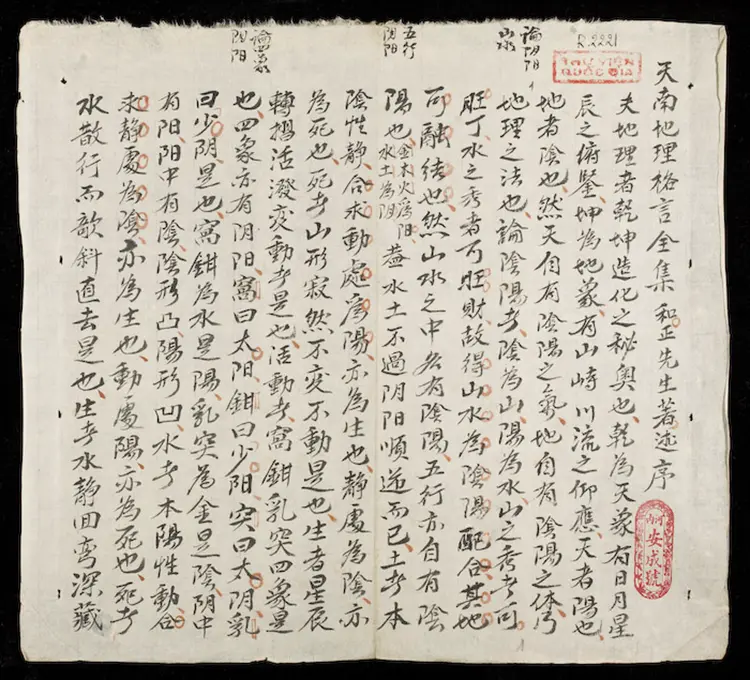 R.2221
THƯ VIỆN
QUỐC GIA
論阴阳
山水
五行
阴阳
論四象
阴阳
天南地理格言全集和正先生著述序
夫地理者乾坤造化之秘奥也乾為天象有日月星
辰之俯鑒坤為地象有山峙川流之仰應天者陽也
地者陰也然天自有陰陽之氣地自有陰陽之体乃
地理之法也論陰陽者陰為山陽為水山之秀者可
旺丁水之秀者可旺財故得山水為陰陽配合其地
可融結也然山水之中各有陰陽五行亦自有陰
陽也金木火為阳水土為阴盖水土不過阴阳順逆而已土者本
陰性静合求動處為陽亦為生也静處為陰亦
為死也死者山形寂然不变不動是也生者星辰
轉摺活潑变動者是也活動者窩鉗乳突四象是
也四象亦有阴阳窩曰太阳鉗曰少阳突曰太阴乳
曰少阴是也窩鉗為水是陽乳突為金是陰阴中
有阳阳中有陰陰形凸陽形凹水者本陽性動合
求静處為陰亦為生也動處陽亦為死也死者
水散行而欹斜直去是也生者水静囬弯深藏
安成號